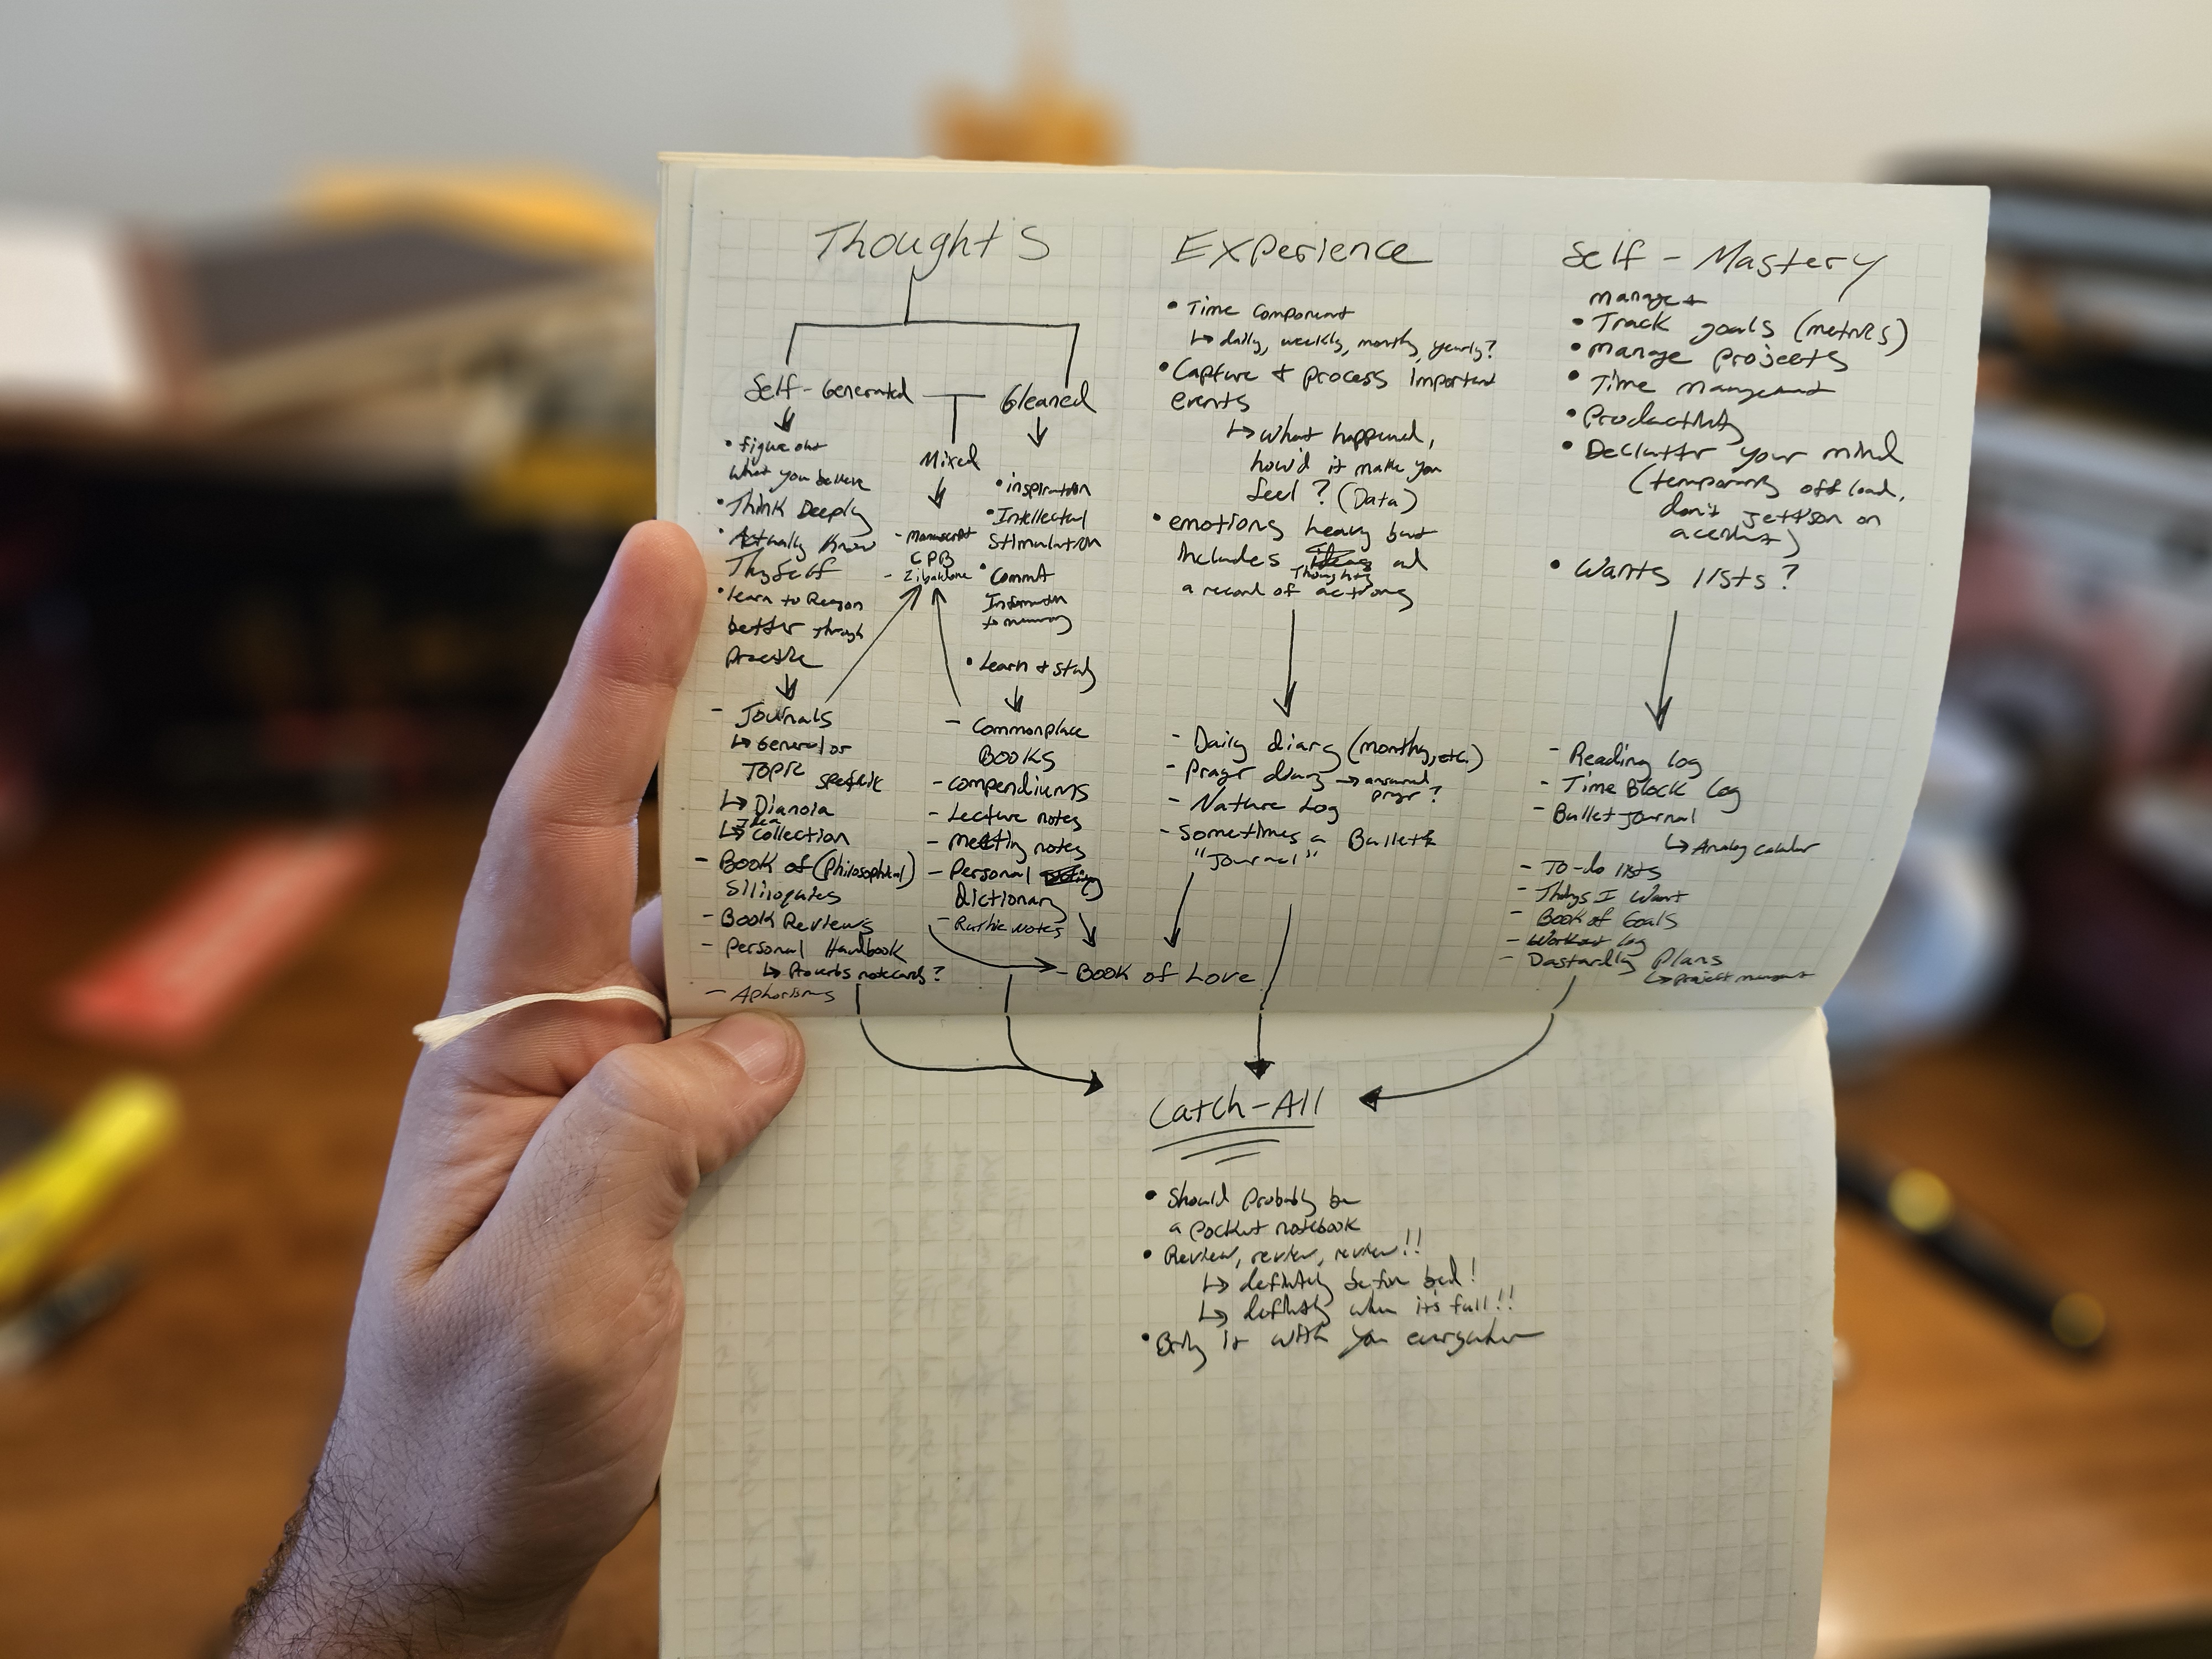 Thoughts
Self-Generated
Gleaned
Mixed
• figure out
what you believe
• Think Deeply
• Actually Know
Thy Self
• learn to Reason
better through
Practice
- Journals
↳ General or
Topic specific
↳ Dianoia
↳ Idea collection
- Book of (Philosophical)
- Book Reviews
- Personal Handbook
↳ Proverbs notecards?
- Aphorisms
- Manuscript
CPB
- Zibaldone
• inspiration
• Intellectual
Stimulation
• Commit
Information
to memory
• Learn + study
- Commonplace
Books
- Compendiums
- Lecture notes
- Meeting notes
- Personal
Dictionary
- Ruthie Notes
- Book of Love
Experience
• Time Component
↳ daily, weekly, monthly, yearly?
• Capture + process important
events
↳ what happened,
how'd it make you
feel? (Data)
• emotions heavy but
includes Thoughts and
a record of actions
- Daily diary (monthly, etc.)
- Prayer diary → answered
prayer?
- Nature Log
- Sometimes a Bullet
"Journal"
Self-Mastery
manage +
• Track goals (metrics)
• Manage projects
• Time Management
• Productivity
• Declutter your mind
(temporarily off load,
don't jettison on
accident)
• Wants lists?
- Reading log
- Time Block Log
- Bullet Journal
↳ Analog calendar
- To-do lists
- Things I Want
- Book of Goals
- Workout log
- Dastardly Plans
↳ project
Catch-All
• Should probably be
a pocket notebook
• Review, review, review!!
↳ definitely before bed!
↳ definitely when it's full!!
• Bring it with you everywhere